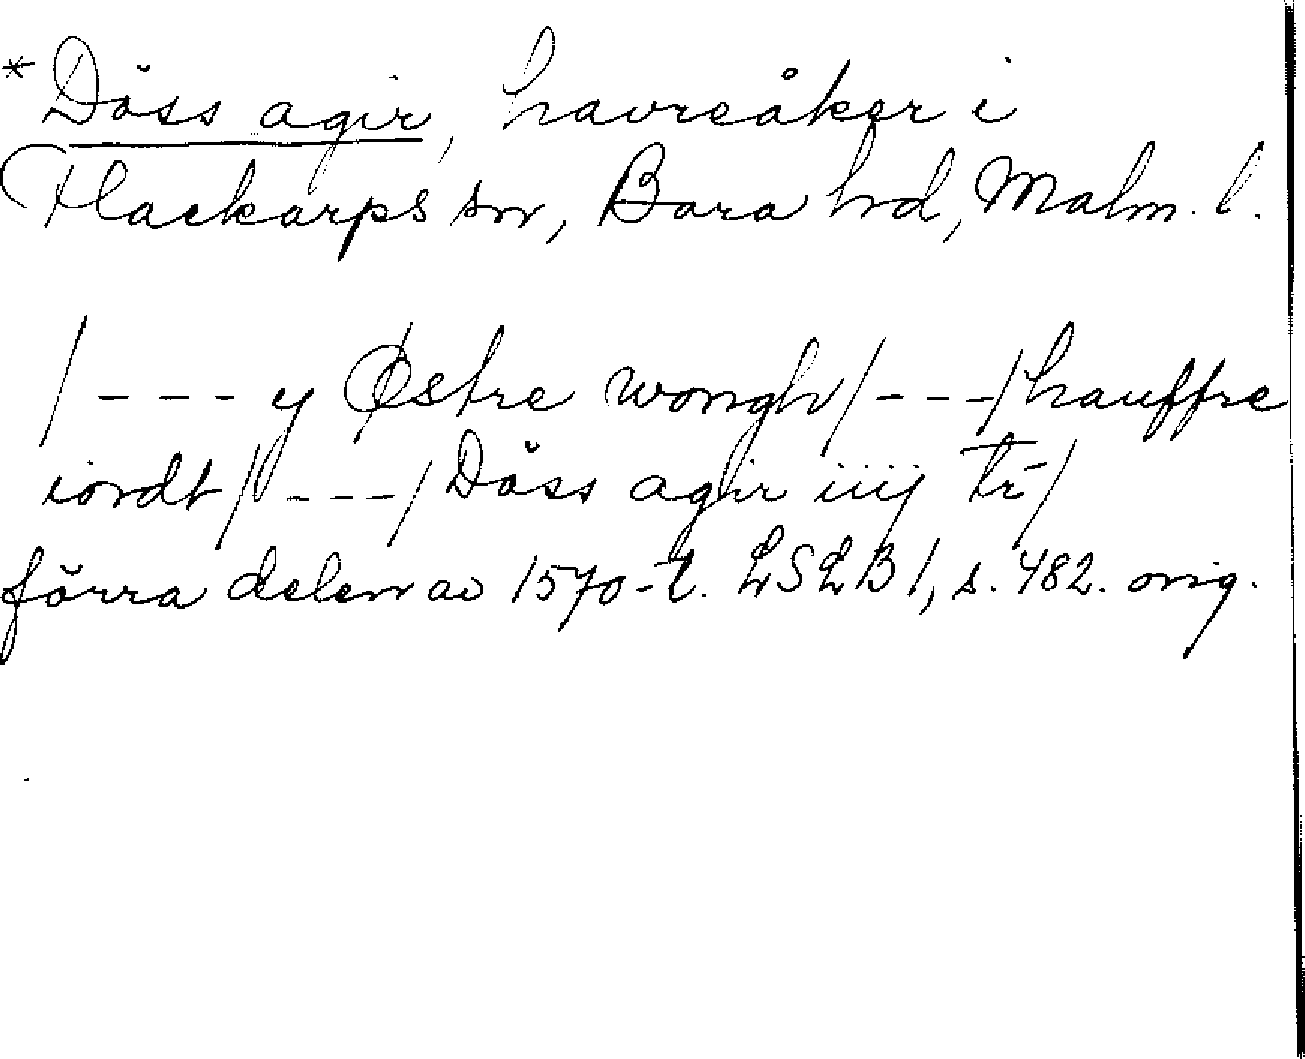 *Döss agir, havreåker i
Flackarps sn, Bara hd, Malm. l.
/---y Østre wongh/---/hauffre
iordt/---/Döss agir iiij tr/
förra delen av 1570-t. LSLB 1, s. 482. orig.